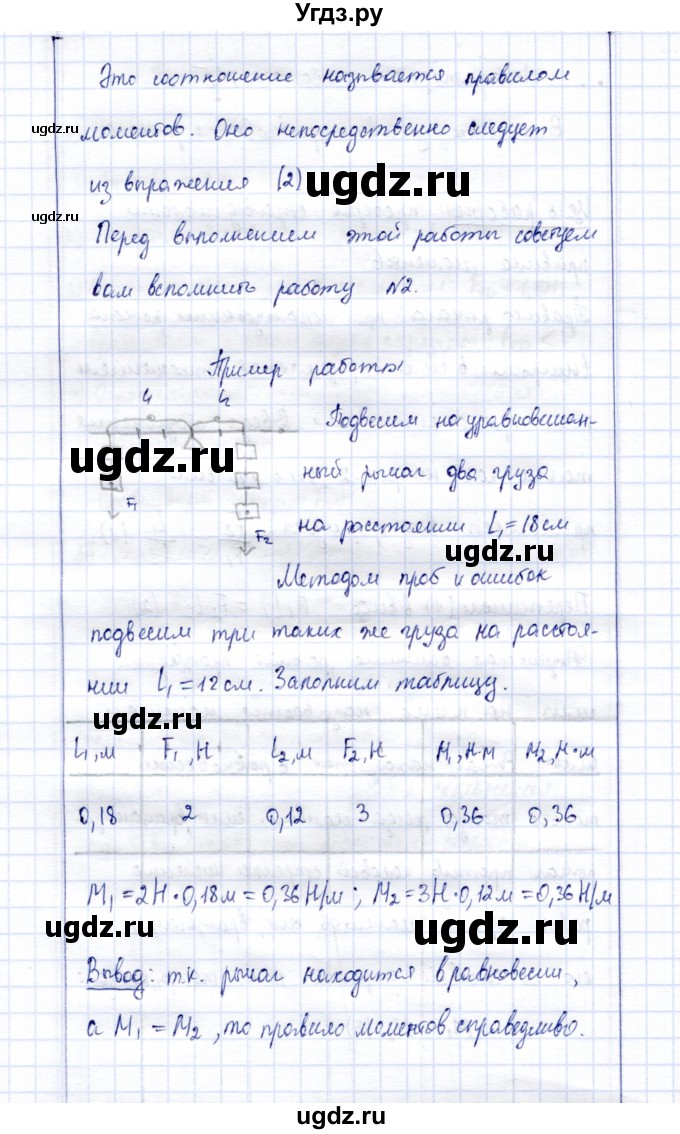 Угдз.ру
Это соотношение называется правилом
ugdz.ru
моментов. Оно непосредственно следует
из выражения (2)
ugdz.ru
ugdz.ru
Перед выполнением этой работы советуем
вам вспомнить работу №2.
Пример работы
L₁ L₂
Подвесим на уравновешан-
ugdz.ru
ный рычаг два груза
F₁
на расстоянии L₁ = 18 см
F₂
ugdz.ru
Методом проб и ошибок
подвесим три таких же груза на расстоя-
нии L₁ = 12 см. Заполним таблицу.
ugdz.ru
L₁, м F₁, Н L₂, м F₂, Н M₁, Н·м M₂, Н·м
0,18 2 0,12 3 0,36 0,36
M₁ = 2Н · 0,18м = 0,36 Н/м ; M₂ = 3Н · 0,12м = 0,36 Н/м
ugdz.ru
ugdz.ru
Вывод: т.к. рычаг находится в равновесии,
а M₁ = M₂, то правило моментов справедливо.
ugdz.ru